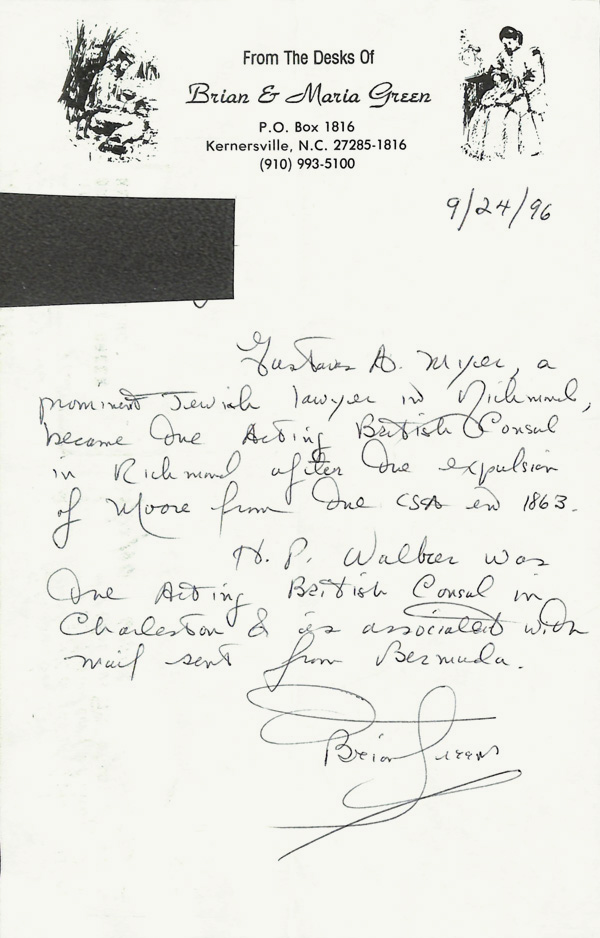 From The Desks Of
Brian & Maria Green
P.O. Box 1816
Kernersville, N.C. 27285-1816
(910) 993-5100
9/24/96
Gustavus A. Myer, a
prominent Jewish lawyer in Richmond,
became the Acting British Consul
in Richmond after the expulsion
of Moore from the CSA in 1863.
H. P. Walker was
the Acting British Consul in
Charleston & is associated with
mail sent from Bermuda.
Brian Green